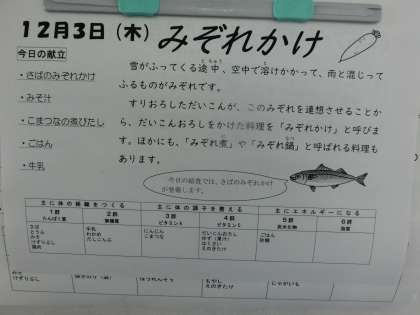 12月3日(木) みぞれかけ
今日の献立
・さばのみぞれかけ
・みそ汁
・こまつなの煮びたし
・ごはん
・牛乳
雪がふってくる途中、空中で溶けかかって、雨と混じって
ふるものがみぞれです。
すりおろしただいこんが、このみぞれを連想させることか
ら、だいこんおろしをかけた料理を「みぞれかけ」と呼びま
す。ほかにも、「みぞれ煮」や「みぞれ鍋」と呼ばれる料理も
あります。
今日の給食では、さばのみぞれかけ
が登場します。
主に体の組織をつくる 主に体の調子を整える 主にエネルギーになる
1群 2群 3群 4群 5群 6群
たんぱく質 無機質 ビタミンA ビタミンC 炭水化物 脂質
さば 牛乳 にんじん だいこんおろし ごはん
とうふ わかめ こまつな ゆず(果汁) 砂糖
みそ だしこんぶ はくさい
けずりぶし えのきたけ
鶏肉
けずりぶし ほうれんそう もやし じゃがいも
えのきたけ